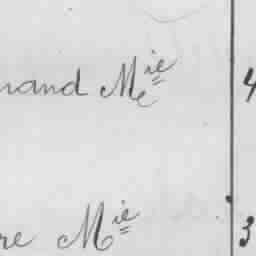 nand Mie 4
re Mie 3